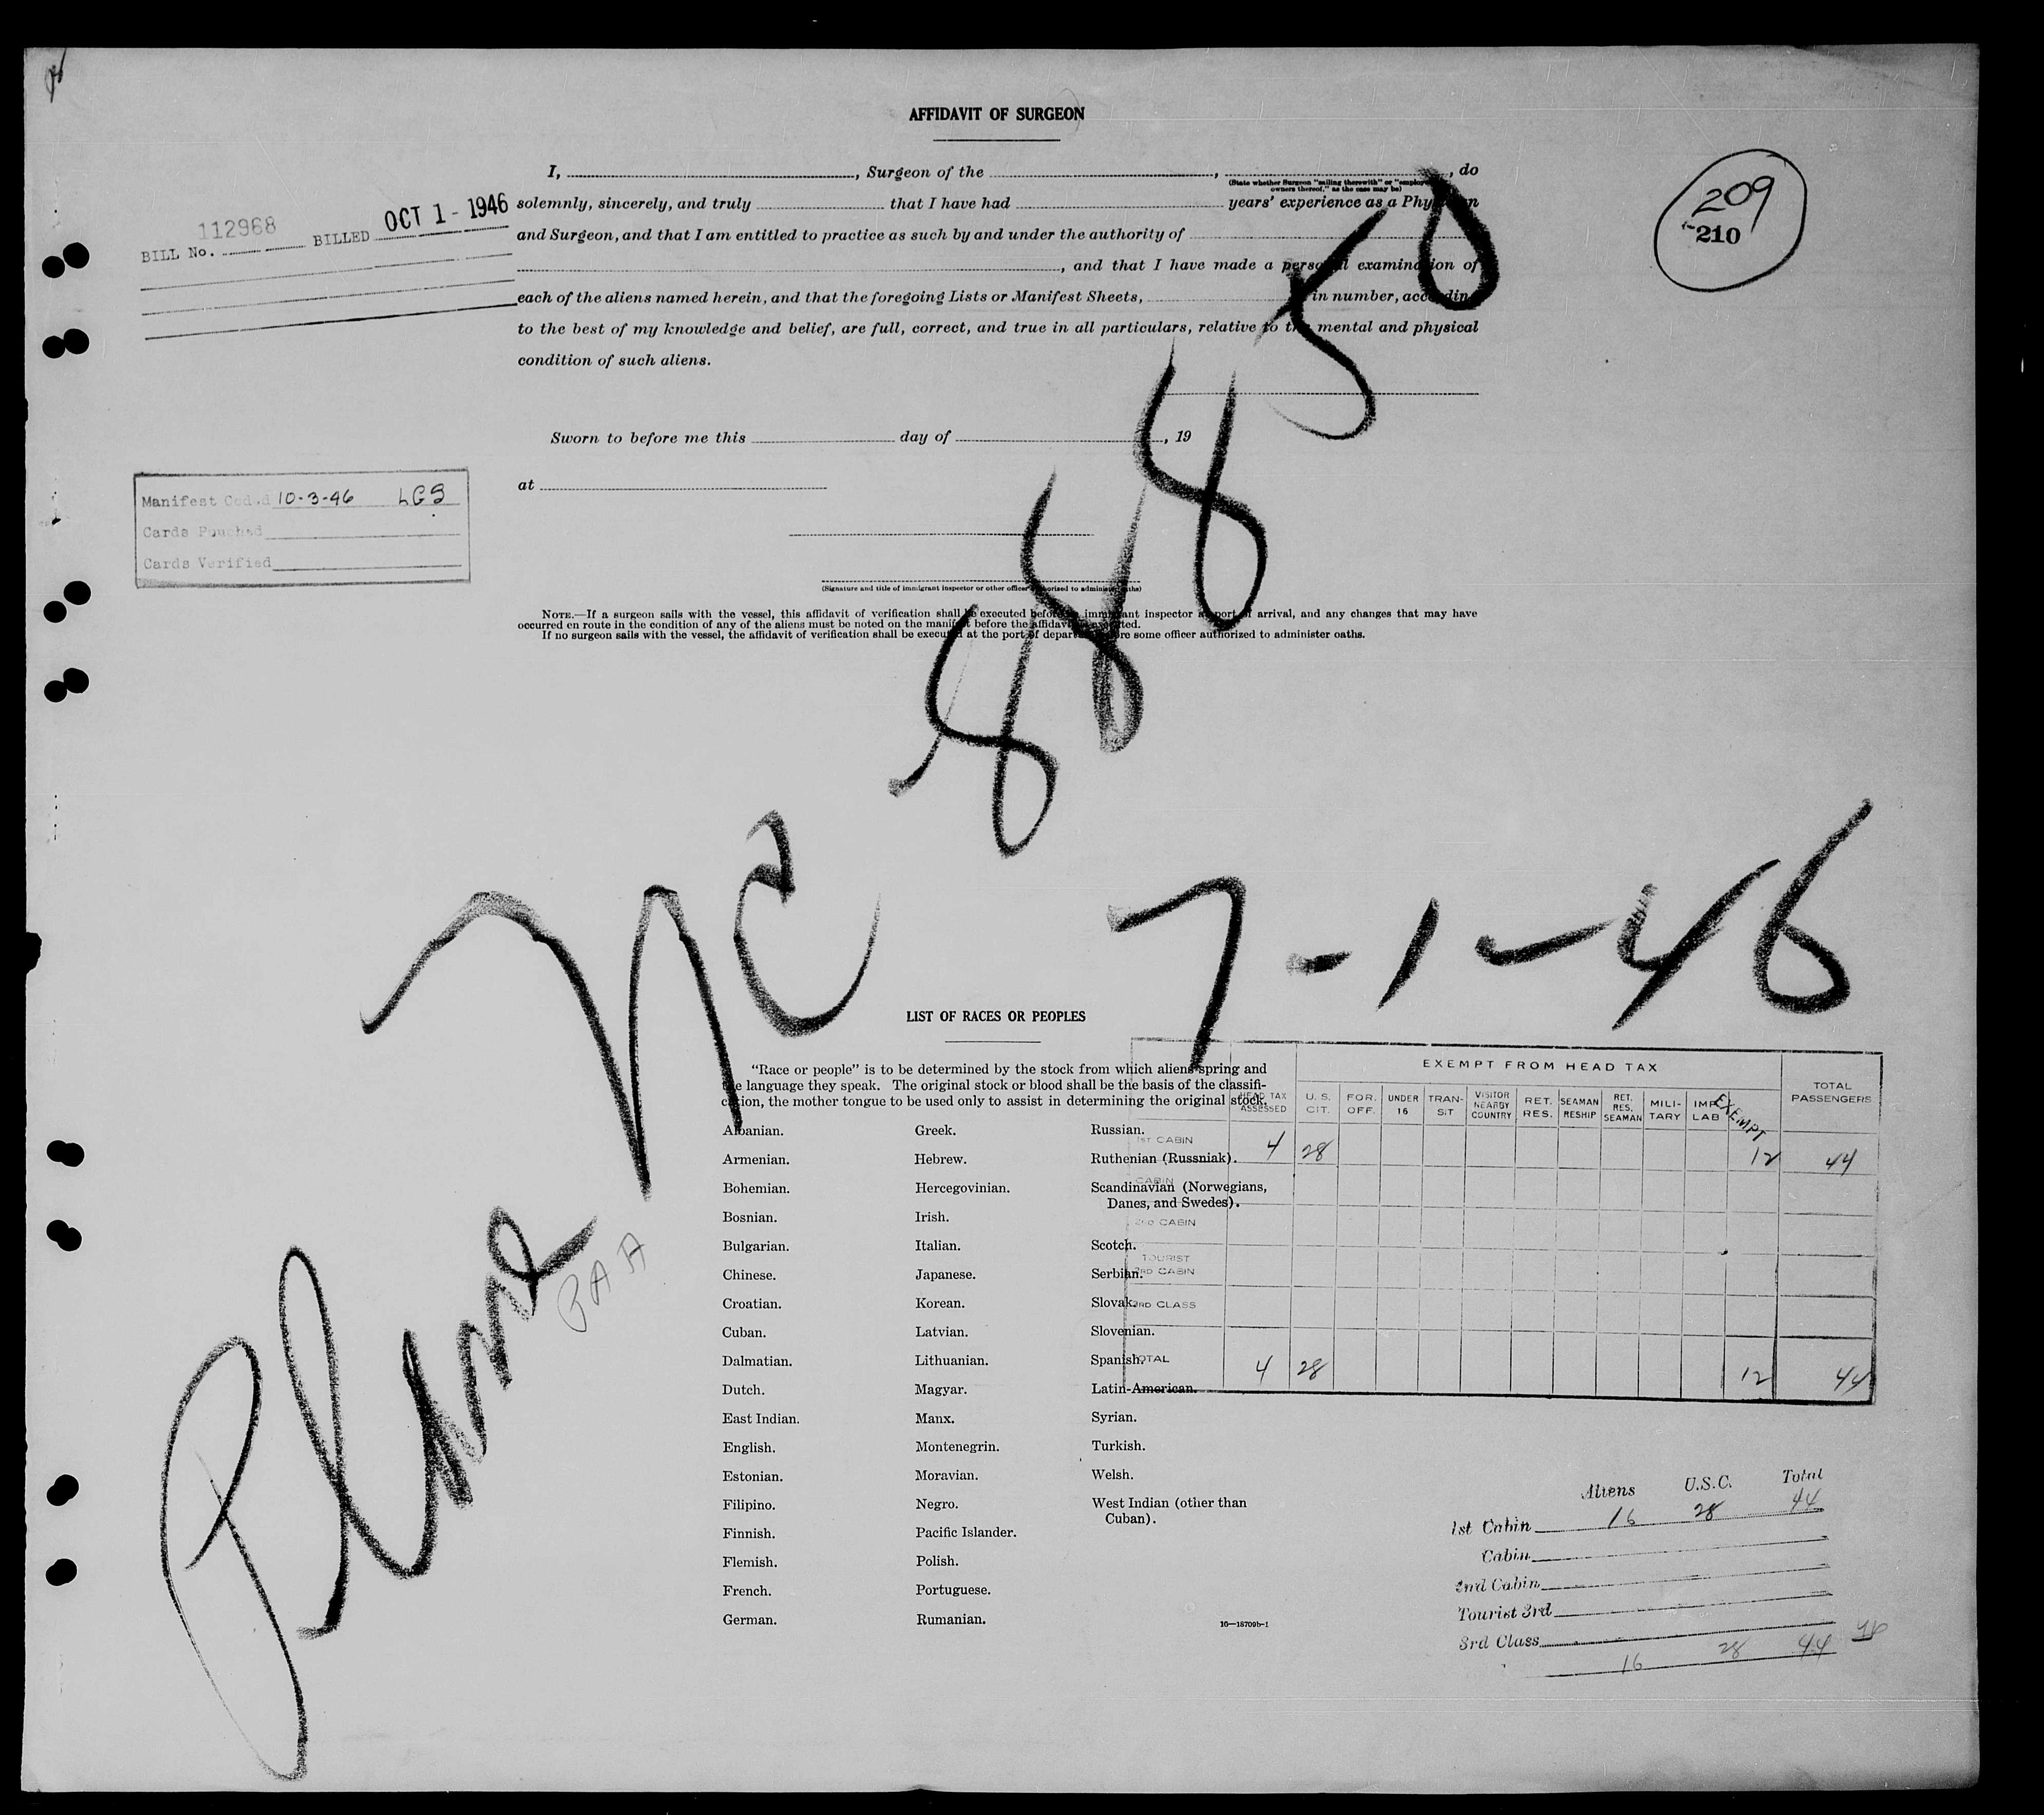 AFFIDAVIT OF SURGEON
I, , Surgeon of the , , do
(State whether Surgeon "sailing therewith" or "employ
owners thereof," as the case may be)
solemnly, sincerely, and truly that I have had years' experience as a Physician
and Surgeon, and that I am entitled to practice as such by and under the authority of
, and that I have made a personal examination of
each of the aliens named herein, and that the foregoing Lists or Manifest Sheets, in number, according
to the best of my knowledge and belief, are full, correct, and true in all particulars, relative to the mental and physical
condition of such aliens.
Sworn to before me this day of , 19
at
(Signature and title of immigrant inspector or other officer authorized to administer oaths)
NOTE.—If a surgeon sails with the vessel, this affidavit of verification shall be executed before an immigrant inspector at port of arrival, and any changes that may have
occurred en route in the condition of any of the aliens must be noted on the manifest before the affidavit is executed.
If no surgeon sails with the vessel, the affidavit of verification shall be executed at the port of departure before some officer authorized to administer oaths.
BILL No. 112968 BILLED OCT 1 - 1946
209
210
Manifest Coded 10-3-46 LGS
Cards Punched
Cards Verified
Plane NC 88850
7-1-46
PAA
LIST OF RACES OR PEOPLES
"Race or people" is to be determined by the stock from which aliens spring and
the language they speak. The original stock or blood shall be the basis of the classifi-
cation, the mother tongue to be used only to assist in determining the original stock.
Albanian.
Armenian.
Bohemian.
Bosnian.
Bulgarian.
Chinese.
Croatian.
Cuban.
Dalmatian.
Dutch.
East Indian.
English.
Estonian.
Filipino.
Finnish.
Flemish.
French.
German.
Greek.
Hebrew.
Hercegovinian.
Irish.
Italian.
Japanese.
Korean.
Latvian.
Lithuanian.
Magyar.
Manx.
Montenegrin.
Moravian.
Negro.
Pacific Islander.
Polish.
Portuguese.
Rumanian.
Russian.
Ruthenian (Russniak).
Scandinavian (Norwegians,
Danes, and Swedes).
Scotch.
Serbian.
Slovak.
Slovenian.
Spanish.
Latin-American.
Syrian.
Turkish.
Welsh.
West Indian (other than
Cuban).
16—18709b-1
EXEMPT FROM HEAD TAX
HEAD TAX ASSESSED U. S. CIT. FOR. OFF. UNDER 16 TRAN-SIT VISITOR NEARBY COUNTRY RET. RES. SEAMAN RESHIP RET. RES. SEAMAN MILI-TARY IMP. LAB EXEMPT TOTAL PASSENGERS
1ST CABIN 4 28 12 44
CABIN
2ND CABIN
TOURIST
3RD CABIN
3RD CLASS
TOTAL 4 28 12 44
Aliens U.S.C. Total
1st Cabin 16 28 44
Cabin
2nd Cabin
Tourist 3rd
3rd Class
16 28 44